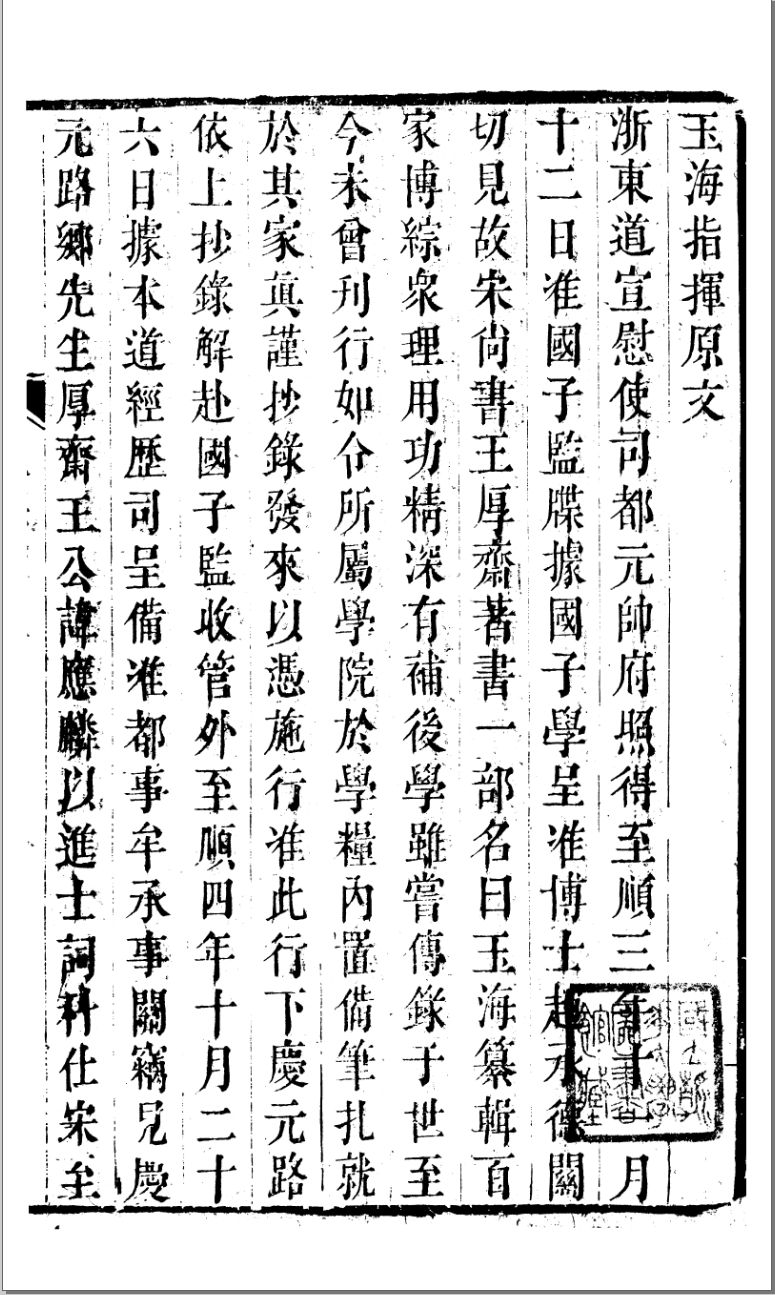 玉海指揮原文
浙東道宣慰使司都元帥府照得至順三年十二月
十二日准國子監牒據國子學呈准博士趙承德關
切見故宋尚書王厚齋著書一部名曰玉海纂輯百
家博綜衆理用功精深有補後學雖嘗傳錄于世至
今未曾刊行如令所屬學院於學糧內置備筆扎就
於其家眞謹抄錄發來以憑施行准此行下慶元路
依上抄錄解赴國子監收管外至順四年十月二十
六日據本道經歷司呈備准都事牟承事關竊見慶
元路鄉先生厚齋王公諱應麟以進士詞科仕宋至